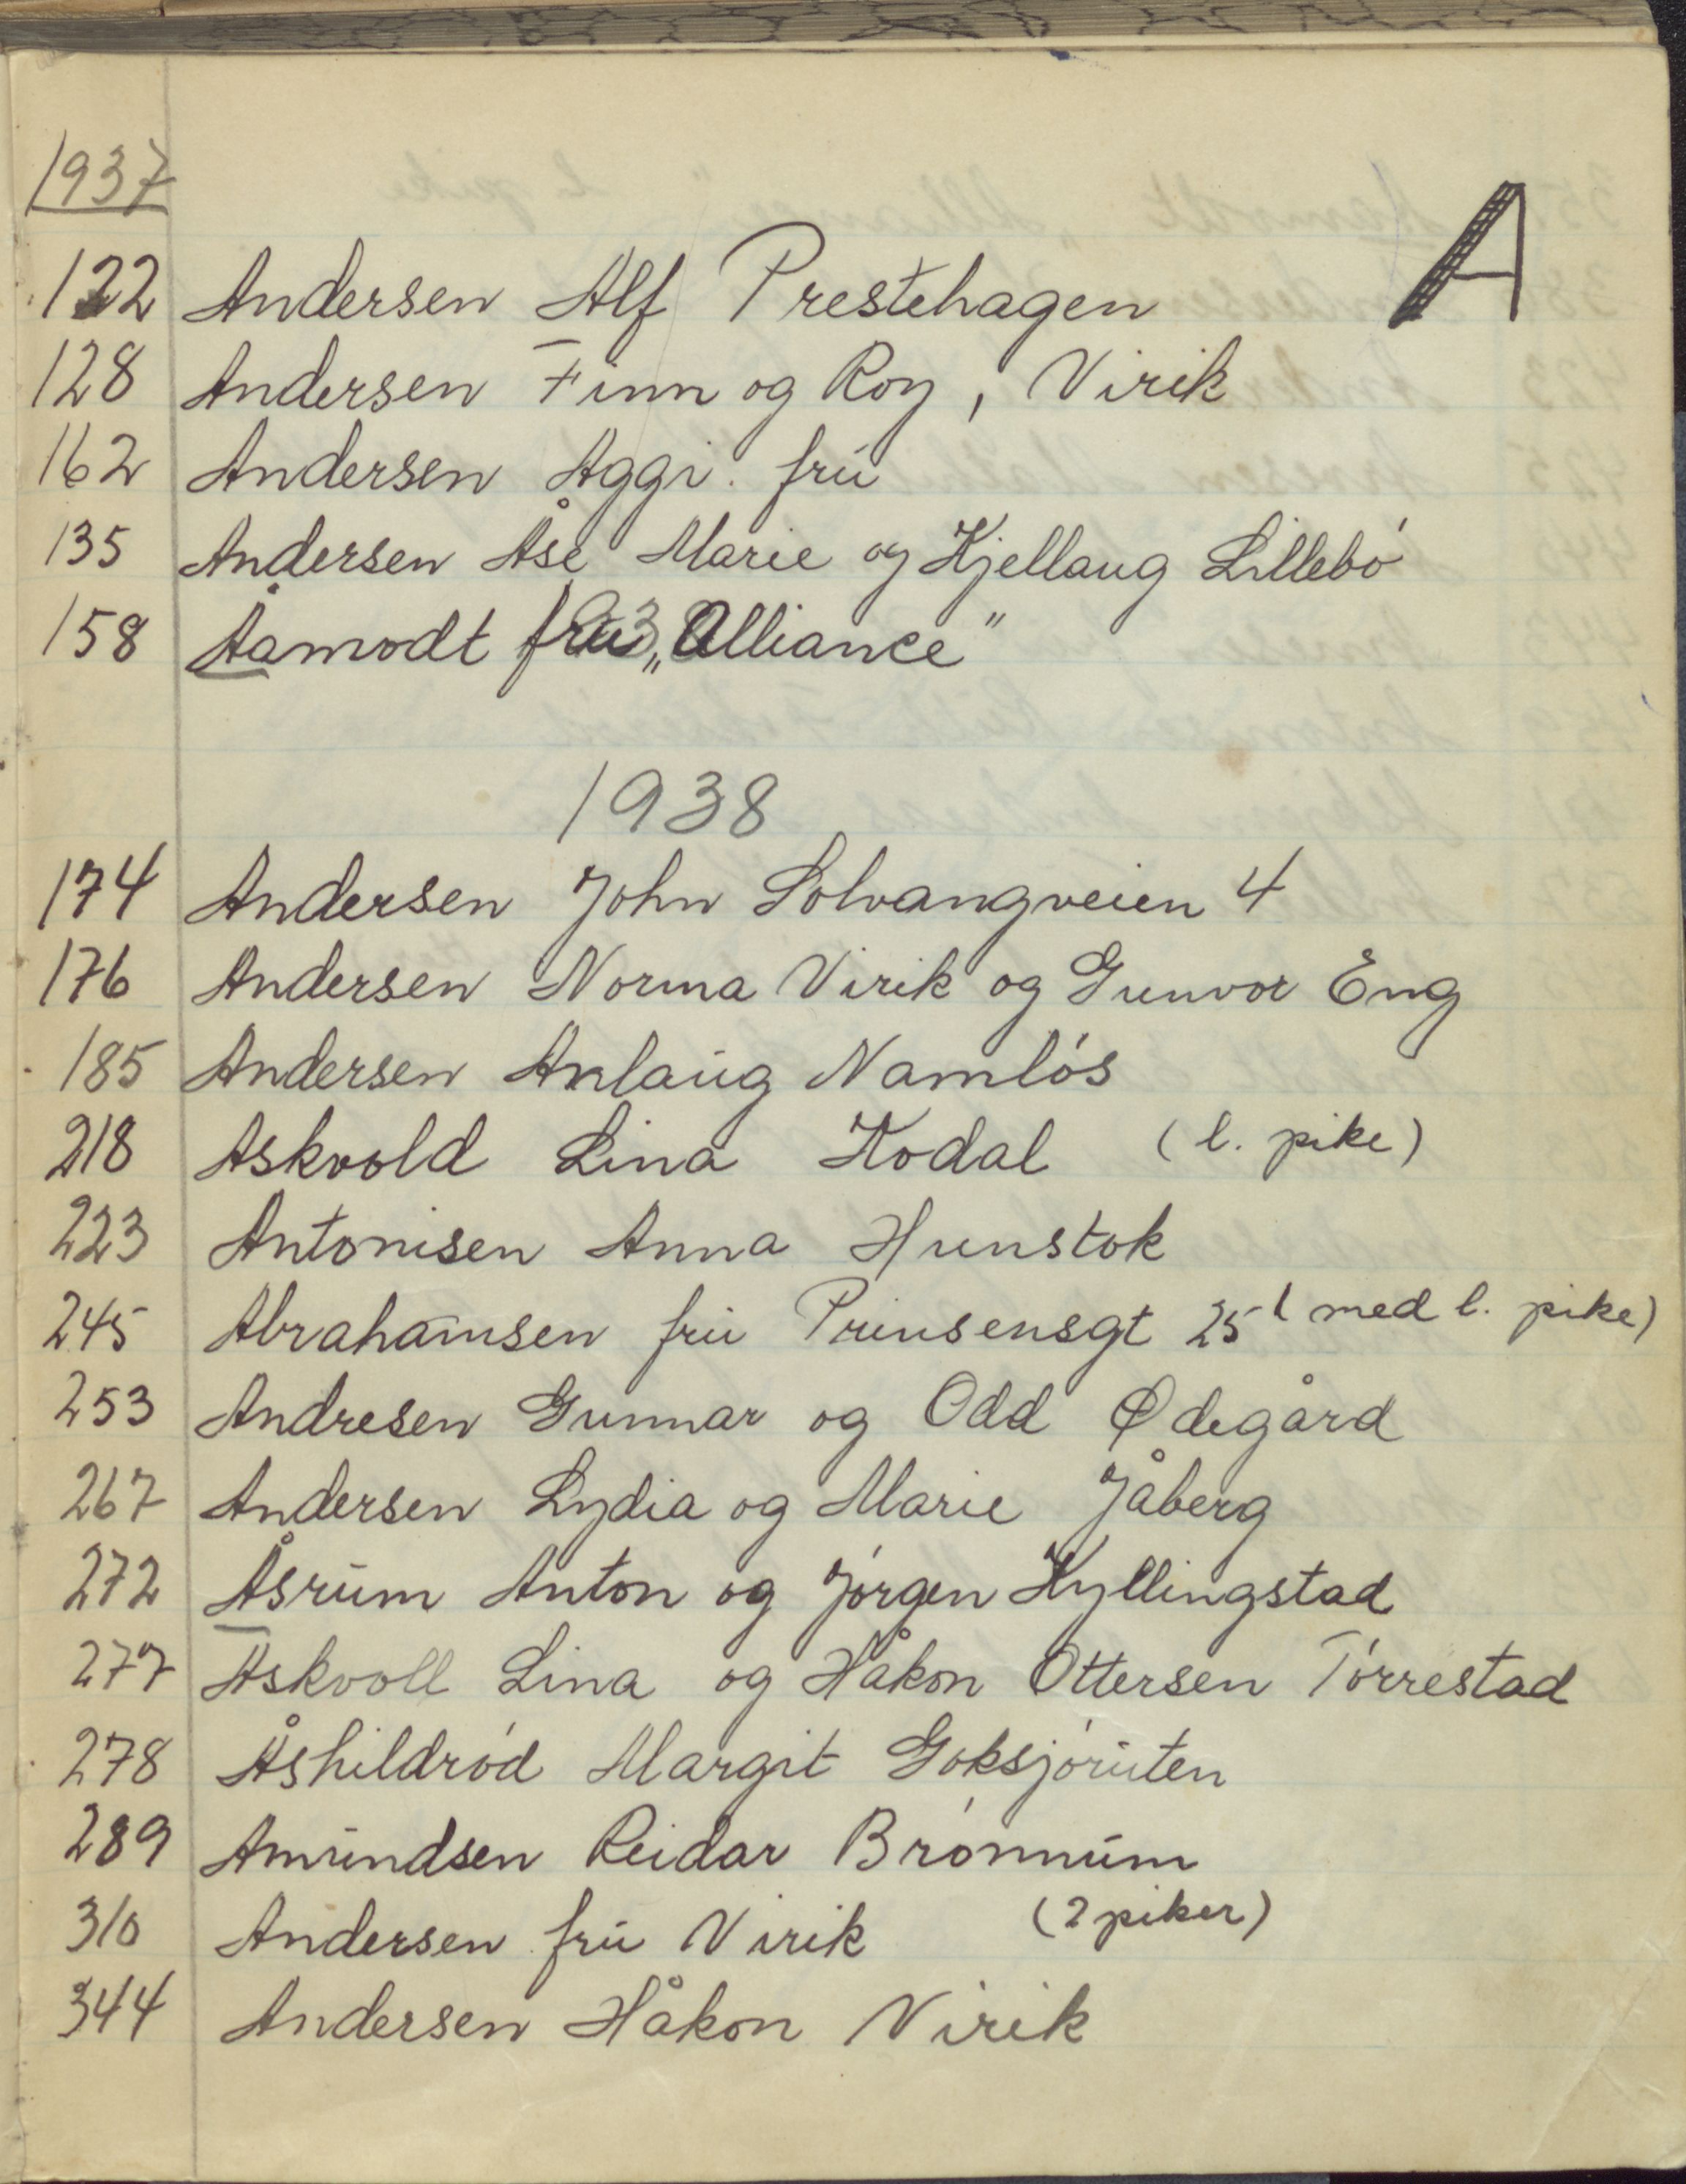 1937
A
122 Andersen Alf Prestehagen
128 Andersen Finn og Roy, Virik
162 Andersen Aggi. frú
135 Andersen Åse Marie og Kjellaug Lillebó
158 Åamodt frú „Alliance"
1938
174 Andersen John Solvangveien 4
176 Andersen Norma Virik og Gunvor Eng
185 Andersen Anlaúg Namlós
218 Askvold Lina Kodal (l. pike)
223 Antonisen Anna Hunstok
245 Abrahamsen frú Prinsensgt 25 (med l. pike)
253 Andresen Gunnar og Odd Ødegård
267 Andersen Lydia og Marie Jåberg
272 Åsrúm Anton og Jórgen Hyllingstad
277 Askvoll Lina og Håkon Ottersen Tórrestad
278 Åshildród Margit Goksjórúten
289 Amúndsen Reidar Brónnúm
310 Andersen frú Virik (2 piker)
344 Andersen Håkon Virik